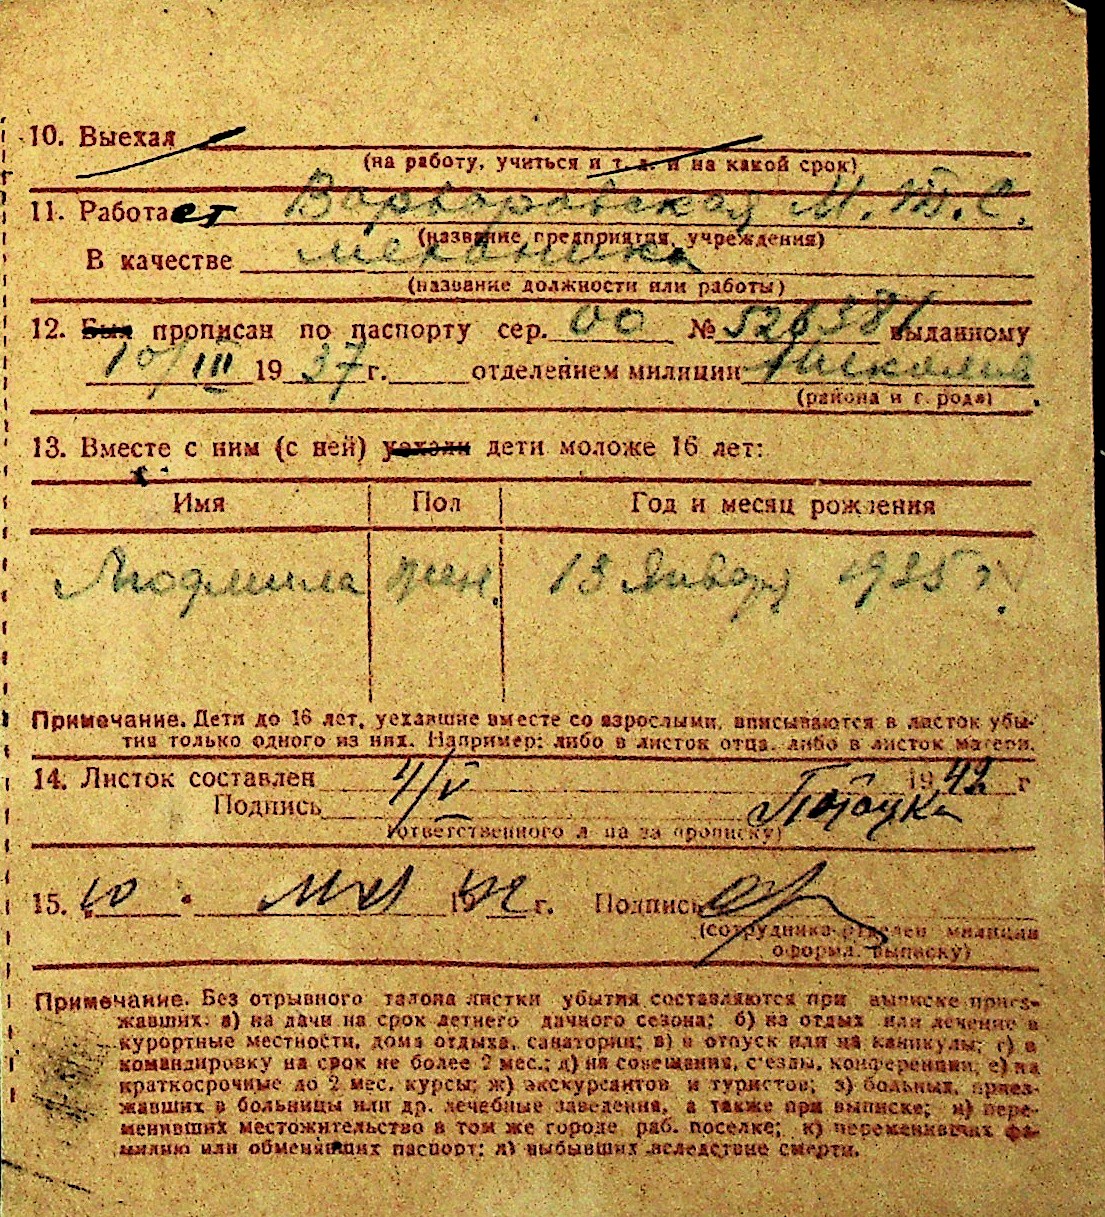 10. Выехал
(на работу, учиться и т. д. и на какой срок)
11. Работает Варваровская М.Т.С.
(название предприятия, учреждения)
В качестве механика
(название должности или работы)
12. Был прописан по паспорту сер. 00 № 526381 выданному
10/III 1937 г. отделением милиции
(района и города)
13. Вместе с ним (с ней) уехали дети моложе 16 лет:
Имя Пол Год и месяц рождения
Людмила жен. 13 Января 1935 г.
Примечание. Дети до 16 лет, уехавшие вместе со взрослыми, вписываются в листок убы-
тия только одного из них. Например: либо в листок отца, либо в листок матери.
14. Листок составлен 4/V 1942 г
Подпись
(ответственного лица за прописку)
15. 10 " мая 1942 г. Подпись
(сотрудника отделен милиции
оформл. выписку)
Примечание. Без отрывного талона листки убытия составляются при выписке приез-
жавших: а) на дачи на срок летнего дачного сезона; б) на отдых или лечение в
курортные местности, дома отдыха, санатории; в) в отпуск или на каникулы; г) в
командировку на срок не более 2 мес.; д) на совещания, съезды, конференции; е) на
краткосрочные до 2 мес. курсы; ж) экскурсантов и туристов; з) больных, приез-
жавших в больницы или др. лечебные заведения, а также при выписке; и) пере-
менивших местожительство в том же городе раб. поселке; к) переменивших фа-
милию или обменявших паспорт; л) выбывших вследствие смерти.